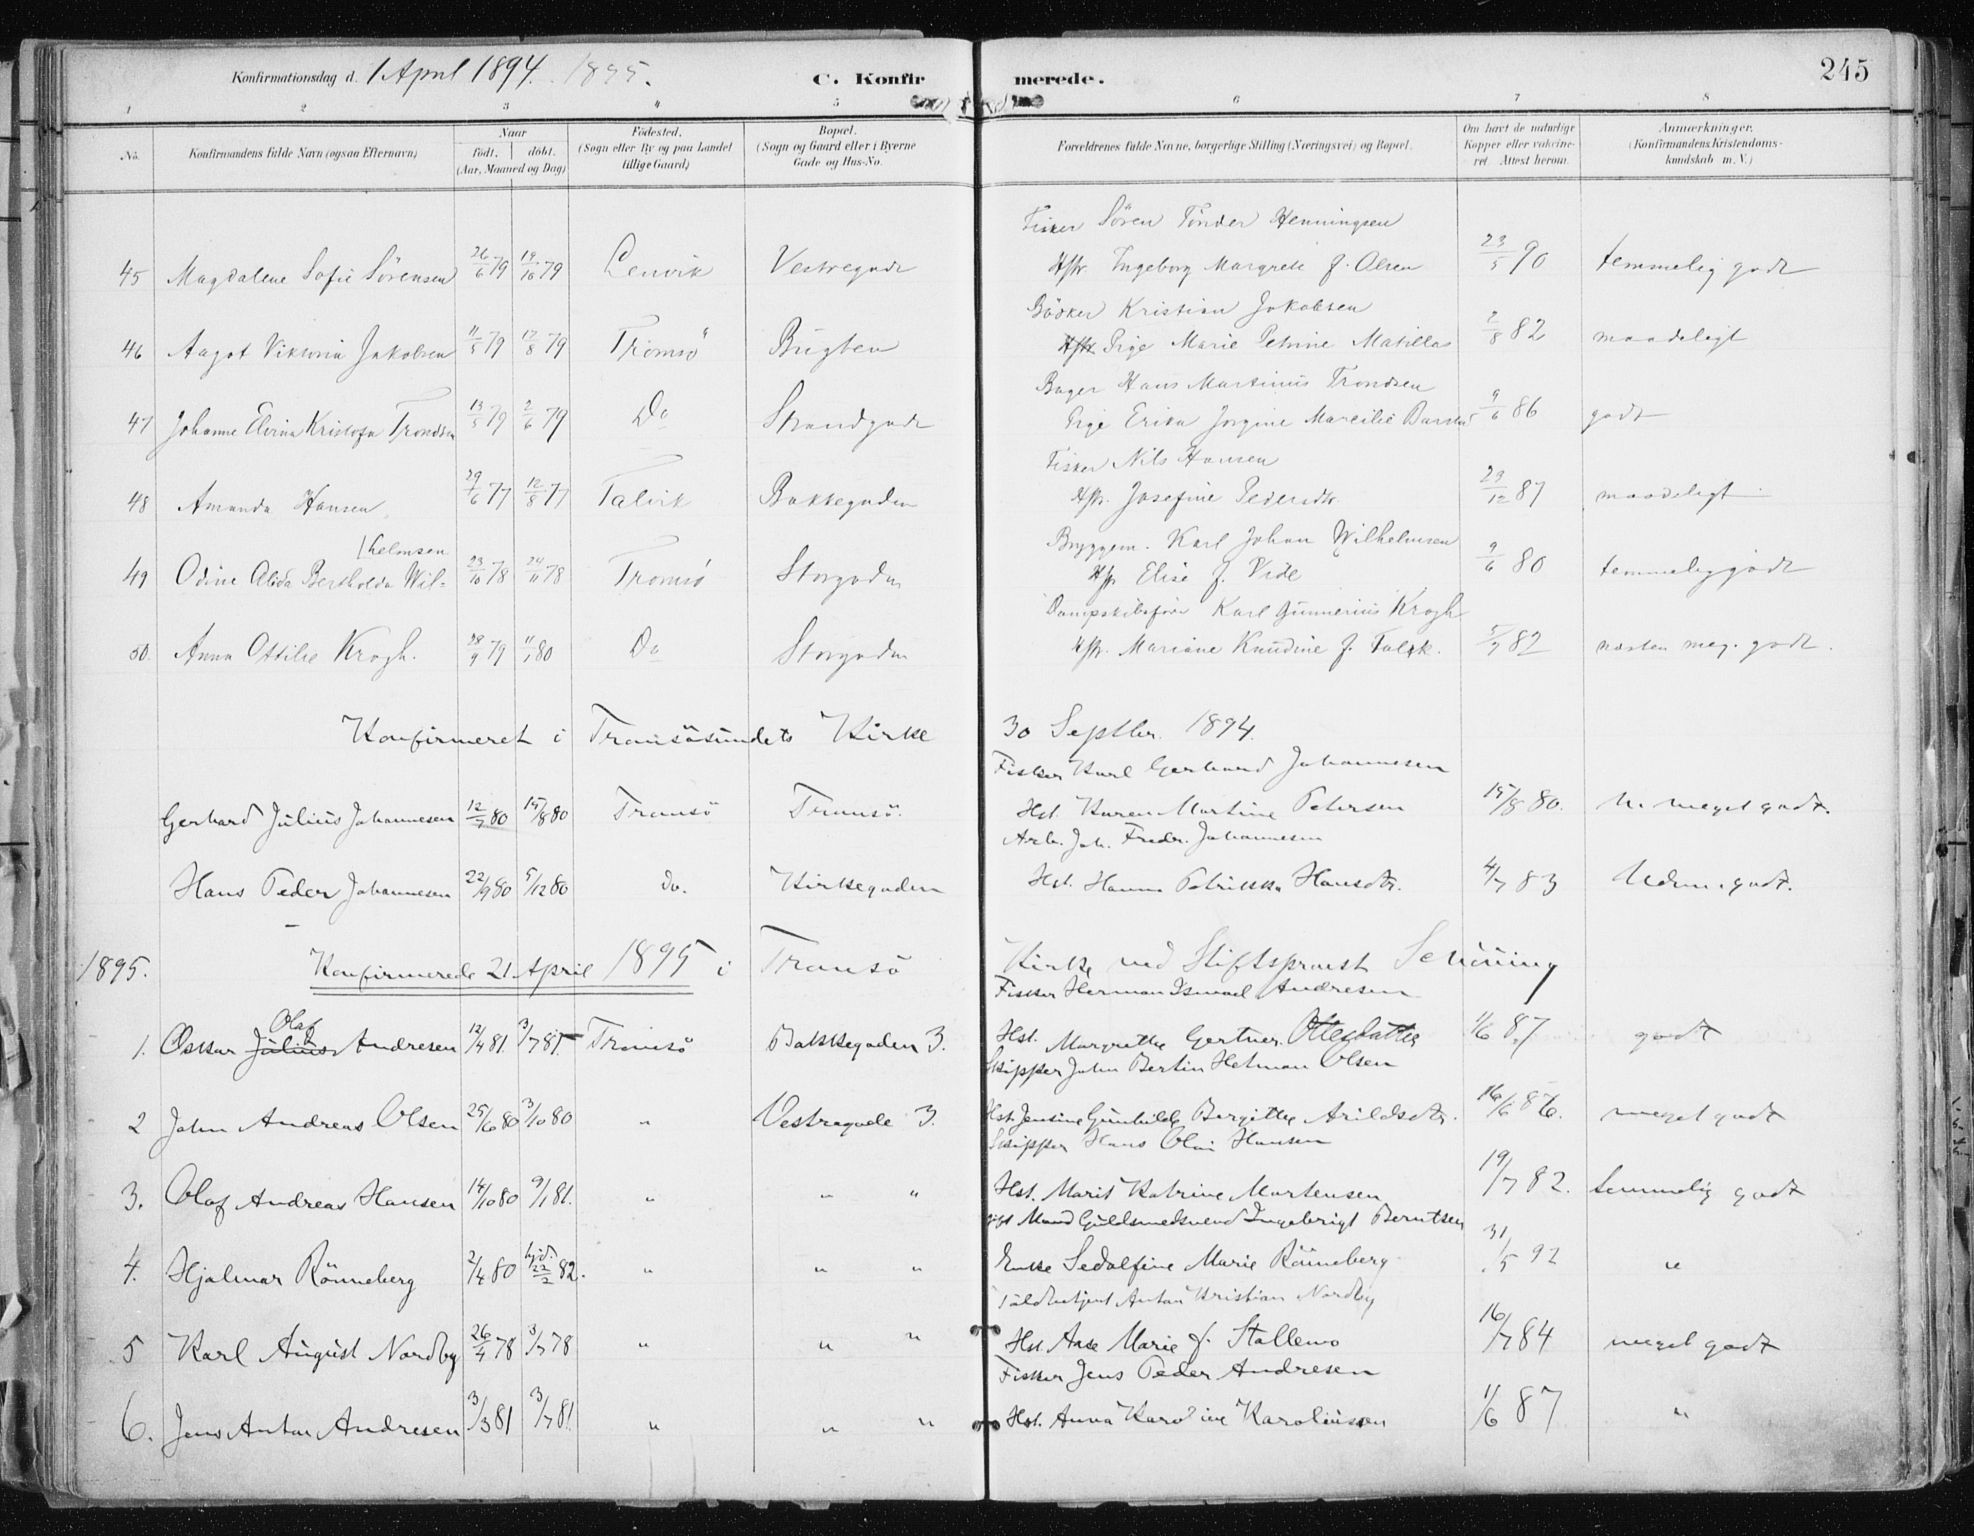 Konfirmationsdag d. 1 April 1894. 1895. C. Konfirmerede. 245
1 2 3 4 5 6 7 8
No. Konfirmandens fulde Navn (ogsaa Efternavn) Naar født, døbt. (Aar, Maaned og Dag) Fødested. (Sogn eller By og paa Landet tillige Gaard) Bopæl. (Sogn og Gaard eller i Byerne Gade og Hus-No. Forældrenes fulde Navne, borgerlige Stilling (Næringsvei) og Bopæl. Om havt de naturlige Kopper eller vakcineret. Attest herom. Anmærkninger. (Konfirmandens Kristendomskundskab m. V.)
Fisker Sören Tönder Henningsen
45 Magdalene Sofie Sörensen 26/6 79 19/10 79 Lenvik Vestregade Hstr. Ingeborg Margrete f. Olsen 23/5 90 temmelig godt
Bödker Kristian Jakobsen
46 Aagot Viktoria Jakobsen 11/5 79 17/8 79 Tromsö Bugten Pige Marie Petrine Matillas 2/8 82 maadeligt
Bager Hans Martinus Trondsen
47 Johanne Elvina Kristofa Trondsen 13/5 79 2/6 79 Do Strandgade Pige Erika Jorgine Mareilie 9/6 86 godt
Fisker Nils Hansen
48 Amanda Hansen 29/6 77 12/8 77 Talvik Bakkegaden Hstr. Josefine Pedersdtr. 29/12 87 maadeligt
Bryggem. Karl Johan Wilhelmsen
49 Odine Alida Bertholda Wil=helmsen 23/10 78 24/11 78 Tromsö Storgaden Hstr Elise f. Vide 9/6 80 temmelig godt
Dampskibsförer Karl Gunnerius Krogh
50. Anna Ottilie Krogh. 28/9 79 11/1 80 Do Storgaden Hstr. Mariane Knudine f. Falck. 5/7 82 næsten meg. godt.
Konfirmeret i Tromsösundets Kirke 30 Septbr. 1894.
Fisker Karl Gerhard Johannesen
Gerhard Julius Johannesen 12/7 80 15/8 80 Tromsö Tromsö. Hst. Karen Martine Petersen 15/8 80. N. meget godt.
Arb. Joh. Fredr. Johannesen
Hans Peder Johannesen 22/9 80 5/12 80 Do. Kirkegaden Hst. Hanna Petrikka Hansdtr. 4/7 83 Udm. godt.
1895. Konfirmerede 21 April 1895 i Tromsö Kirke ved Stiftsprovst Schüning
Fisker Herman Ismael Andresen
1. Oskar Julius Olaf Andresen 12/4 81 3/7 81 Tromsö Bakkegaden 3. Hst. Margrethe Gertner. Ottesdatter 1/6 87. godt
Skipper John Bertin Hetman Olsen
2 John Andreas Olsen 25/6 80 3/10 80 " Vestregade 3. Hst. Jensine Gunhilde Bergitte Arildsdtr. 16/6 86. meget godt
Skipper Hans Olai Hansen
3. Olaf Andreas Hansen 14/10 80 9/1 81. " " " Hst. Marit Katrine Martensen 19/7 82. temmelig godt
gift Mand Guldsmedsvend Ingebrigt Berntsen
4. Hjalmar Rönneberg 2/4 80 hjd. 22/2 82. " " " Enke Sedolfine Marie Rönneberg 31/5 92 "
Toldbetjent Anton Kristian Nordby
5 Karl August Nordby 26/4 78 3/7 78 " " " Hst. Aase Marie f. Stallemo 16/7 84 meget godt
Fisker Jens Peder Andresen
6. Jens Anton Andresen 3/3 81 3/7 81. " " " Hst. Anna Karoline Karoliussen 1/6 87 "